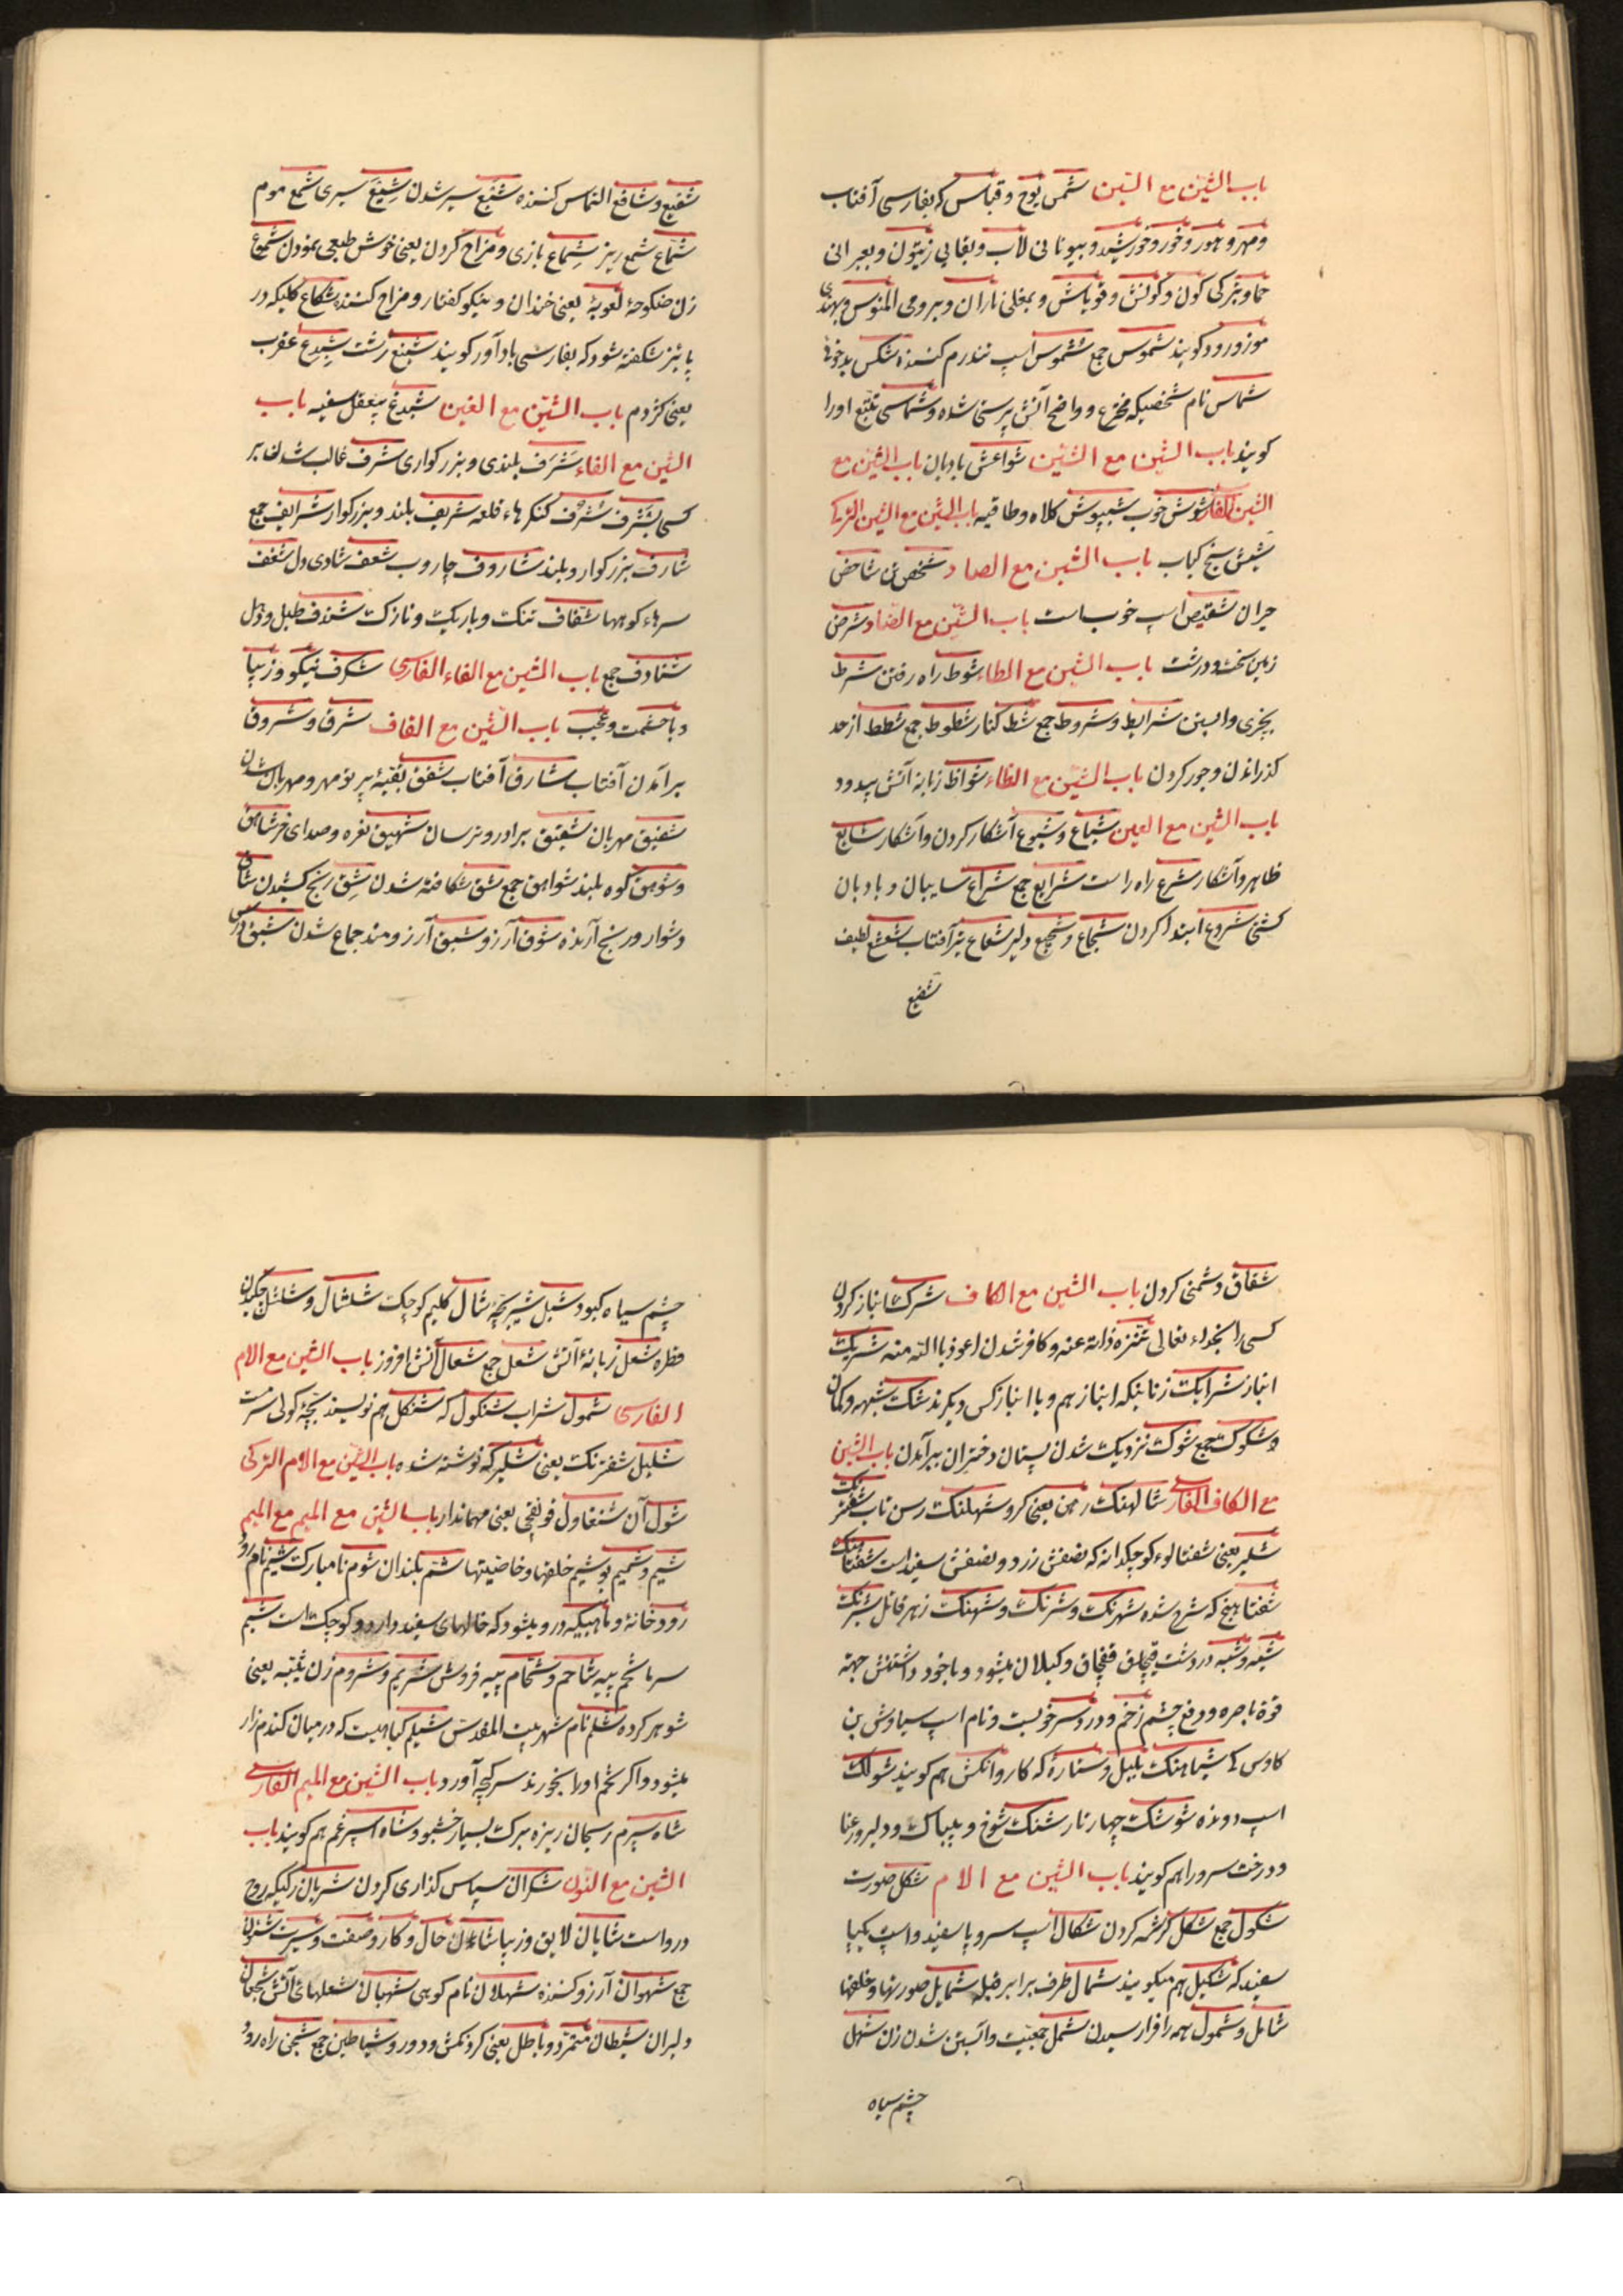 باب الشین مع السین شمس یوح و قناس که بفارسی آفتاب
و مهر و هور و خور و خورشید و بیونانی لاب و بغابی زیتون و بعبرانی
حما و بترکی کون و کونش و قویاش و بمغلی ناران و برومی المنوس و بهندی
موز و رود کویند شموس جمع شموس اسپ تند رم کننده شکس بدخو
شماس نام شخصیکه مخترع و واضح آتش پرستی شده و شماسی تتبع اورا
کویند باب الشین مع الشین شواعش بادبان باب الشین مع
الشین الفار شوش خوب شبپوش کلاه و طاقیه باب الشین مع الشین الترکی
شیش سیخ کباب باب الشین مع الصاد شخص تن شاخص
حیران شقیص اسپ خوبست باب الشین مع الضاد شرض
زمین سخت و درشت باب الشین مع الطاء شوط راه رفتن شرط
بچیزی وابستن شرایط و شروط جمع شط کنار شطوط جمع شطط از حد
کذراندن و جور کردن باب الشین مع الظاء شواظ زبانه آتش بیدود
باب الشین مع العین شیاع و شیوع آشکار کردن و آشکار شایع
ظاهر و آشکار شرع راه راست شرایع جمع شراع سایبان و بادبان
کشتی شروع ابتدا کردن شجاع و شجیع دلیر شعاع نیر آفتاب شعشع لطیف
شفیع
شفیع و شافع التماس کننده شبع سیر شدن شبع سیری شمع موم
شماع شمع ریز شماع بازی و مزاح کردن یعنی خوش طبعی نمودن شموع
زن ضکوحهٔ لعوبهٔ یعنی خندان و نیکو کفتار و مزاح کننده شکاع کلیکه در
پائیز شکفته شود که بفارسی باد آور کویند شبنع زشت شبدع عقرب
یعنی کژدم باب الشین مع الغین شبدغ بیعقل سفیه باب
الشین مع الفاء شرف بلندی و بزرکواری شرف غالب شدن بر
کسی بشرف شرف کنکرهاء قلعه شریف بلند و بزرکوار شرایف جمع
شارف بزرکوار و بلند شاروف جاروب شعف شادی دل شغف
سرهاء کوهها شفاف تنک و باریک و نازک شندف طبل و دهل
شنادف جمع باب الشین مع الفاء الفارسی شکرف نیکو و زیبا
و با حشمت و عجب باب الشین مع القاف شرق و شروق
برآمدن آفتاب شارق آفتاب شفق بقیهٔ پرتو مهر و مهربان شدن
شفیق مهربان شقیق برادر و ترسان شهیق نعره و صدای خر شاهق
و شوهق کوه بلند شواهق جمع شق شکافته شدن شق رنج کشیدن شاق
دشوار و رنج آرنده شوق آرزو شبق آرزومند جماع شدن شبق
شقاق دشمنی کردن باب الشین مع الکاف شرک انباز کردن
کسی را بخداء تعالی تنزه ذاته عنه و کافر شدن اعوذ باالله منه شریک
انباز شرایک زنانیکه انباز هم و با انباز کس دیکرند شک شبهه و کمان
و شکوک جمع شوک نزدیک شدن پستان دختران ببرآمدن باب الشین
مع الکاف الفارسی شالهنک رهن یعنی کرو شهلنک رسن تاب شفرنک
شلیر یعنی شفتالوء کوچکدانه که نصفش زرد و نصفش سفید است شفتاهنک
شفتاییخ که شرح شده شهرنک و شرنک و شهنک زهر قاتل شبرنک
شبه و شبه در دشت قبچاق قفچاق و کیلان میشود و با خود داشتنش جهة
قوة باصره و دفع چشم زخم و درد سر خوبست و نام اسپ سیاوش بن
کاوس کی شباهنک بلبل و ستارهٔ که کاروانکش هم کویند شولک
اسپ دونده شوشک چهارتار شنک شوخ و بیباک و دلبر و رعنا
و درخت سرو را هم کویند باب الشین مع الام شکل صورت
شکول جمع شکل کرشمه کردن شکال اسپ سر و پا سفید و اسپ یکپا
سفید که شکیل هم میکویند شمال طرف برابر قبله شمایل صورتها و خلقها
شامل و شمول همه را فرا رسیدن شمل جمعیت و آبستن شدن زن شهل
چشم سیاه
چشم سیاه کبود شبل شیر بچه شال کلیم کوچک شلشال و شلشل چکیدن
قطره شعل زبانهٔ آتش شعل جمع شعال آتش افروز باب الشین مع الام
الفارسی شمول شراب شنکول که شنکل هم نویسند بچهٔ کولی سرمست
شلیل شفرنک یعنی شلیر که نوشته شده باب الشین مع الام الترکی
شول آن شنغاول قونقچی یعنی مهماندار باب الشین مع المیم مع المیم
شیم و شمیم بو شیم خلقها و خاصیتها شتم بکندان شوم نامبارک شیم نام رود
رودخانهٔ و ماهییکه درو میشود که خالهای سفید دارد و کوچک است شبم
سرما شحم پیه شاحم و شحام پیه فروش شریم و شروم زن ثیبه یعنی
شوهر کرده شلم نام شهر بیت المقدس شیلم کیاهیست که در میان کندم زار
میشود و اکر تخم اورا بخورند سرکیجه آورد باب الشین مع المیم الفارسی
شاه سپرم ریحان ریزه برک بسیار خشبو و شاه اسپرغم هم کویند باب
الشین مع النون شکران سپاس کذاری کردن شریان رکیکه روح
درواست شایان لایق و زیبا شاءن حال و کار و صفت و سیرت شئون
جمع شهوان آرزو کننده شهلان نام کوهی شهبان شعلهای آتش شجعان
دلیران شیطان متمرد و باطل یعنی کردنکش و دور و شیاطین جمع شجن راه رود